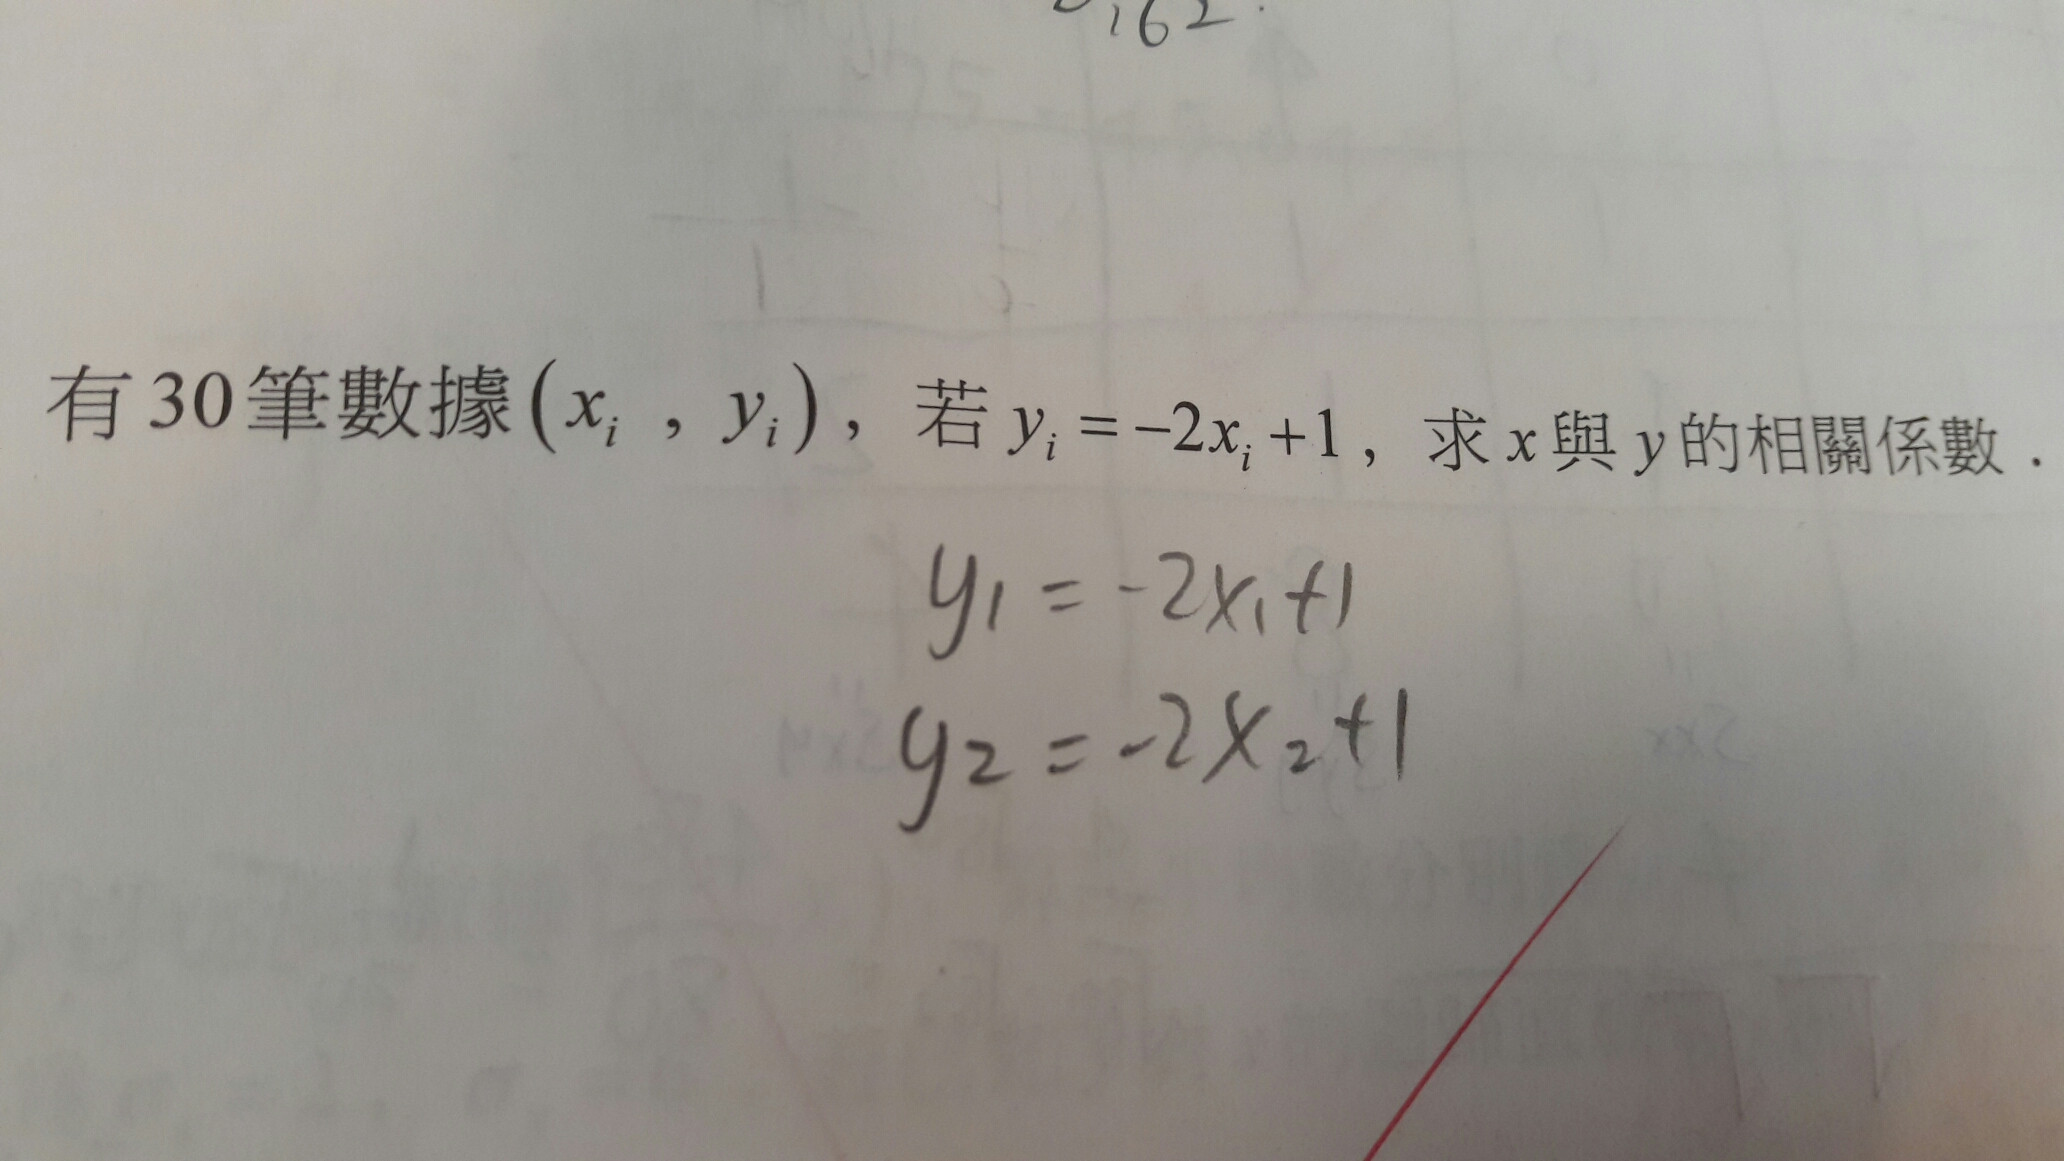 有30筆數據(xᵢ , yᵢ)，若 yᵢ = −2xᵢ +1，求 x 與 y 的相關係數．
y₁ = -2x₁+1
y₂ = -2x₂+1